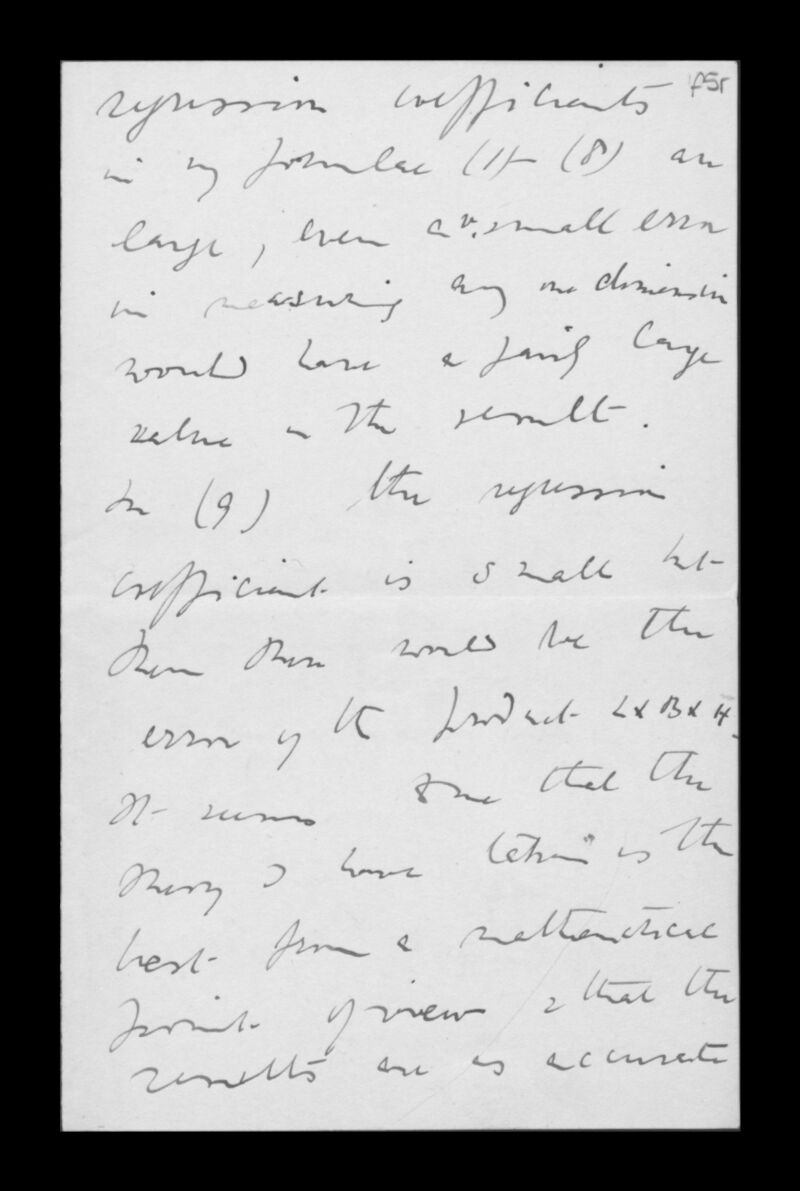 f5r
regression coefficients
in my formulae (1)-(8) are
large, even a v. small error
in measuring any one dimension
would have a fairly large
value in the result.
In (9) the regression
coefficient is small but
then there would be the
error of the product L x B x H.
It seems to me that the
theory I have taken is the
best from a mathematical
point of view & that the
results are as accurate